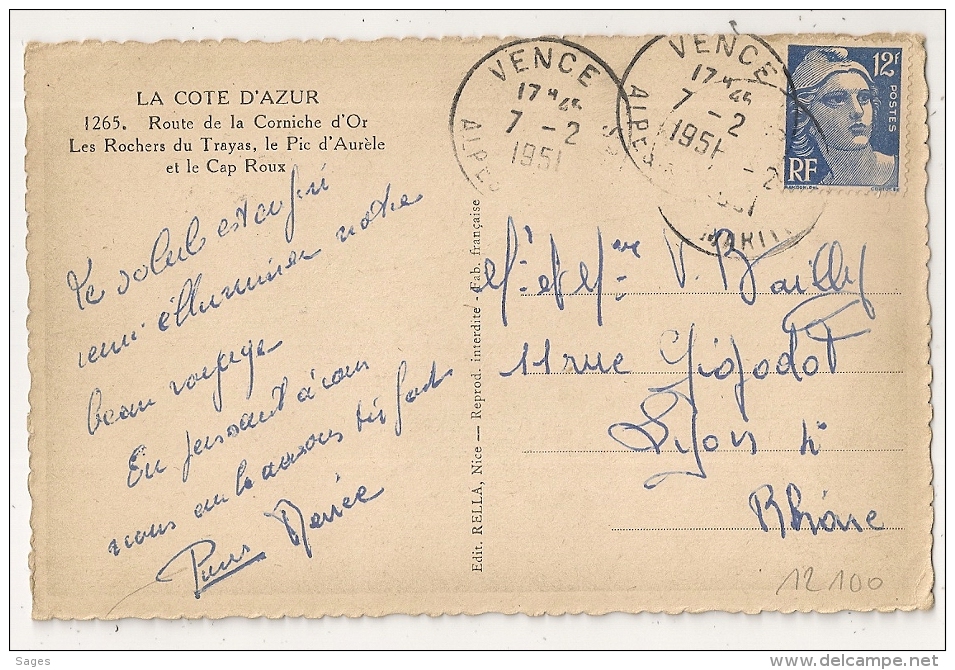 LA COTE D'AZUR
1265. Route de la Corniche d'Or
Les Rochers du Trayas, le Pic d'Aurèle
et le Cap Roux
Le soleil est enfin
venu illuminer notre
beau voyage
En pensant à vous
nous embrassons très fort
Renée
Edit. RELLA, Nice — Reprod. interdite - Fab. française
VENCE
17H45
7 - 2
1951
ALPES
VENCE
17H45
7 - 2
1951
ALPES
MARIT
12F
POSTES
RF
Mr et Mme V. Bailly
11 rue Gigodot
Lyon 4e
Rhône
12100
Sages
www.delcampe.net